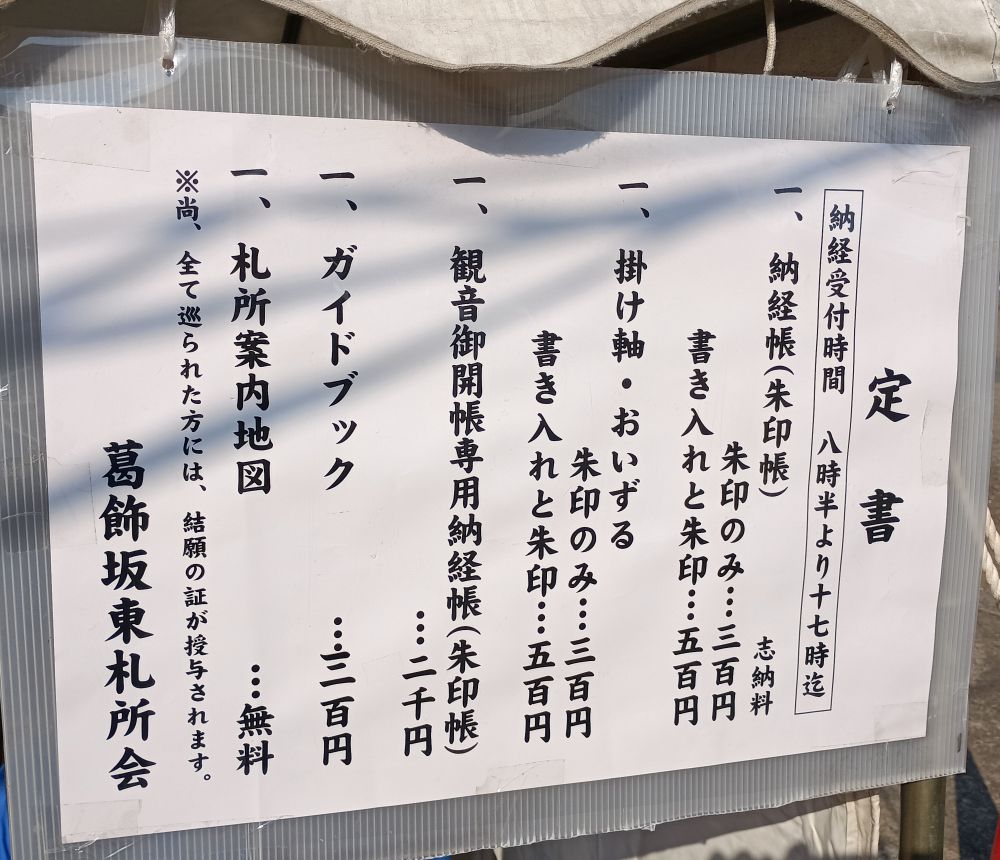 定書
納経受付時間 八時半より十七時迄
一、納経帳(朱印帳) 志納料
朱印のみ…三百円
書き入れと朱印…五百円
一、掛け軸・おいずる
朱印のみ…三百円
書き入れと朱印…五百円
一、観音御開帳専用納経帳(朱印帳)
…二千円
一、ガイドブック …三百円
一、札所案内地図 …無料
※尚、全て巡られた方には、結願の証が授与されます。
葛飾坂東札所会